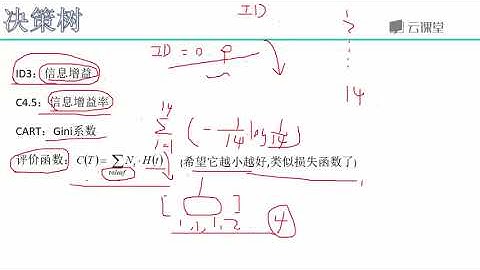 决策树
IID
云课堂
ID = 0
ID3：信息增益
C4.5：信息增益率
14
CART：Gini系数
14 Σ i=1 (- 1/14 log 1/14)
评价函数：C(T)= Σ t∈leaf Nt · H(t) (希望它越小越好,类似损失函数了)
[ ]
1, 1, 1, 2
4